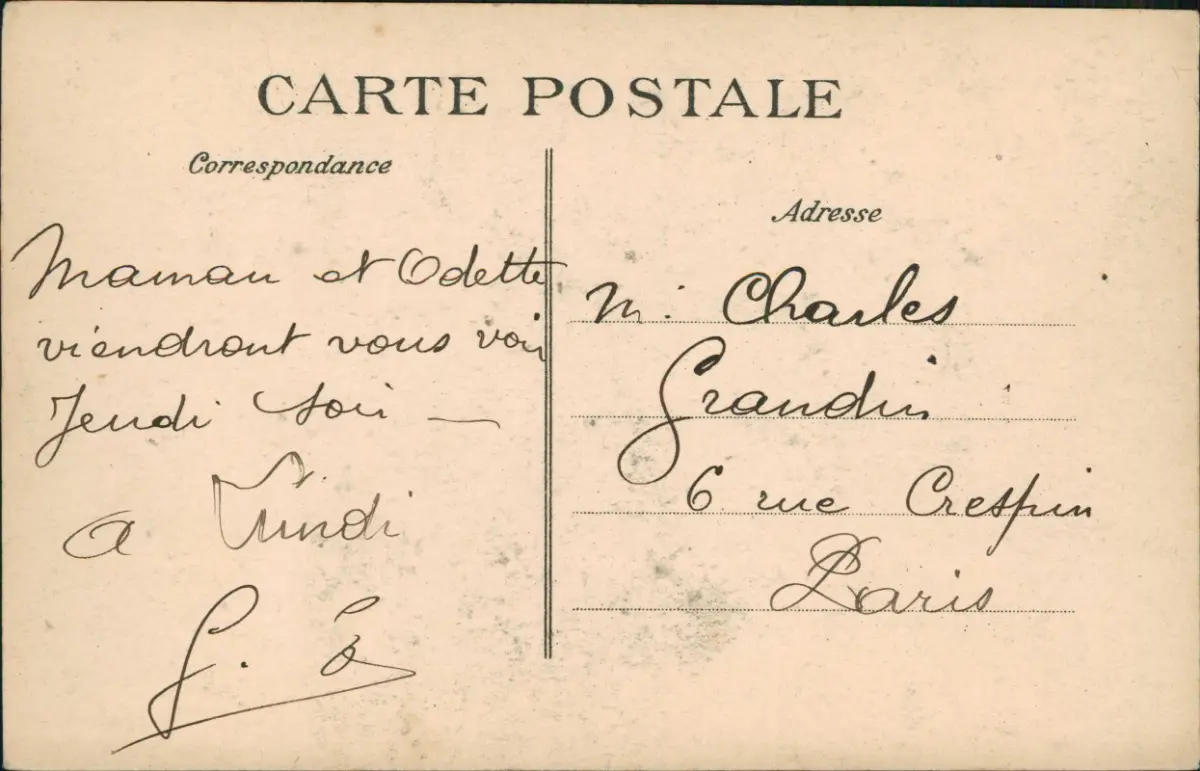 CARTE POSTALE
Correspondance
Maman et Odette
viendront vous voir
Jeudi soir —
a Lundi
Adresse
M. Charles
Grandin
6 rue Crespin
Paris